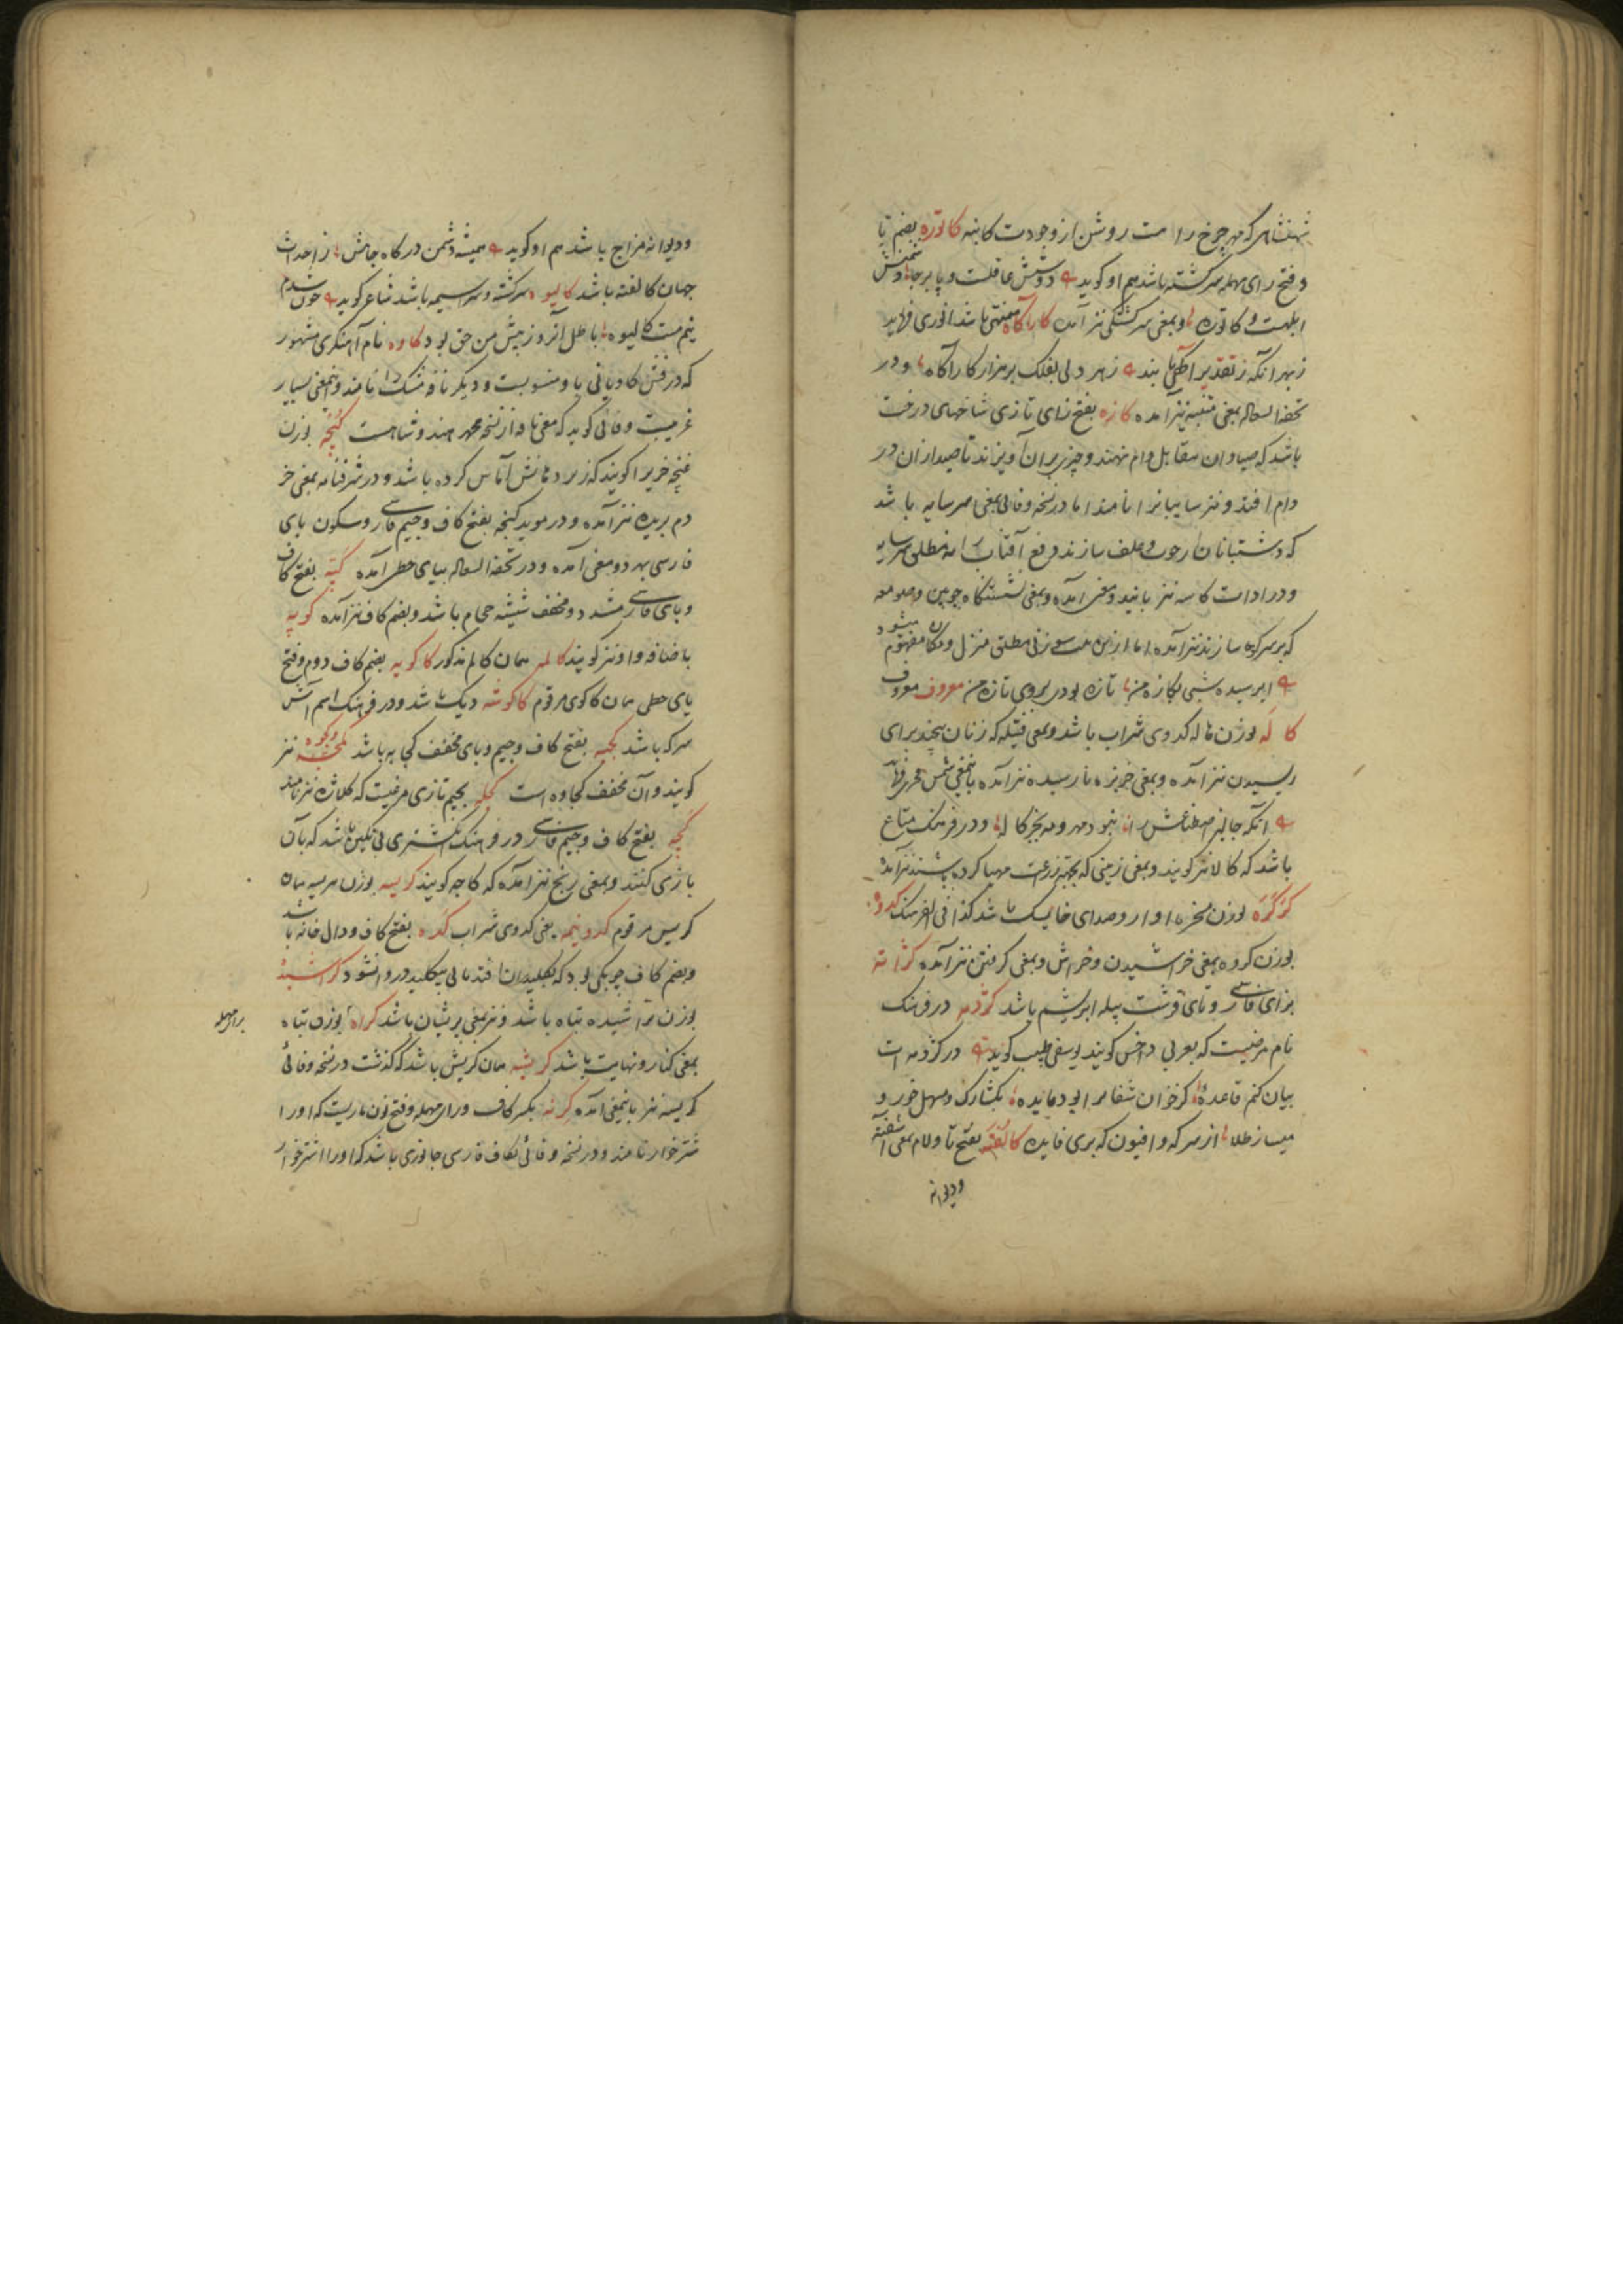 شهنشاهی که مهر چرخ را هست روشن از وجودت کابنه کاتوره بضم تا
و فتح رای مهمله سرکشته باشد هم او کوید دوستش عاقلست و پا برجا دشمنش
ابلهست و کاتوره و بمعنی سرکشتکی نیز آمده کارآکاه منهی باشد انوری فرماید
ز بهر آنکه ز تقدیر آکهی یابند ز هر دلی بفلک بر هزار کارآکاه و در
تحفة السعاده بمعنی نیز آمده کازه بفتح زای تازی شاخهای درخت
باشد که صیادان مقابل دام نهند و چیزی بران آویزند تا صید از ان در
دام افتد و نیز سایبانرا نامند اما در نسخه وفائی بمعنی سرسایه باشد
که دشتبانان از چوب و علف سازند دفع آفتاب را نه مطلق سرسایه
و در ادات کاسه نیز باینمعنی آمده و بمعنی نشستنکاه چوبین و صومعه
که بر سر کوه سازند نیز آمده اما ازین بیت سوزنی مطلق منزل و مکان مفهوم میشود
ابر سیده شبی بکازه من تازه بودم بروی تازه من معروف معروف
کاله بوزن ناله کدوی شراب باشد و بمعنی فتیله که زنان پیچند برای
ریسیدن نیز آمده و بمعنی خربزه نارسیده نیز آمده باینمعنی شمس فخری فرماید
آنکه جالیز اصطناعش را نبود مهر و مه بجز کاله و در فرهنک متاع
باشد که کالا نیز کویند و بمعنی زمینی که بجهة زرعت مهیا کرده باشند نیز آمده
کرکره بوزن مسخره آواز و صدای خایسک باشد کذا فی الفرهنک کدوه
بوزن کروه بمعنی خراشیدن و خراش و بمعنی کرفتن نیز آمده کژانه
بزای فارسی و تای قرشت پیله ابریشم باشد کژدمه در فرهنک
نام مرضیست که بعربی داخس کویند یوسفی طبیب کوید در کژدمه ات
بیان کنم قاعدهٔ کز خوان شفا ترا بود مایده بکشا رک و مسهل خور و
میساز طلا از سرکه و افیون که بری فایده کالفته بفتح تا و لام بمعنی آشفته
ودیوانه
ودیوانه مزاج باشد هم او کوید همیشه دشمن درکاه جاهش ز احداث
جهان کالفته باشد کالیوه سرکشته و سراسیمه باشد شاعر کوید چون شدم
نیم مست کالیوه باطل آنروز پیش من حق بود کاوه نام آهنکری مشهور
که درفش کاویانی باو منسوبست و دیکر نافه مشک را نامند و اینمعنی بسیار
غریبست وفائی کوید که معنی نافه از نسخه محمد هندوشاهست کپنچه بوزن
غنچه خریرا کویند که زیر دهانش آماس کرده باشد و در شرفنامه بمعنی خر
دم بریده نیز آمده و در موید کپنجه بفتح کاف و جیم فارسی و سکون بای
فارسی بهر دو معنی آمده و در تحفة السعاده بیای حطی آمده کپه بفتح کاف
و بای فارسی مشدد و مخفف شیشه حجام باشد و بضم کاف نیز آمده کوپه
باضافه واو نیز کویند کالمه همان کالم مذکور کاکویه بضم کاف دوم و فتح
یای حطی همان کاکوی مرقوم کاکوشه دیک باشد و در فرهنک اسم آش
سرکه باشد کجبه بفتح کاف و جیم و بای مخفف کجابه باشد کجوه نیز
کویند و آن مخفف کجاوه است کجله بجیم تازی مرغیست که کلاژه نیز نامند
کچه بفتح کاف و جیم فارسی در فرهنک انکشتری بی نکین باشد که بآن
بازی کنند و بمعنی زنخ نیز آمده که کاجه کویند کریسه بوزن هریسه همان
کریس مرقوم کدونیمه یعنی کدوی شراب کده بفتح کاف و دال خانه باشد
و بضم کاف چوبکی بود که بکلیدان افتد تا بی کلید در وا نشود کراشیده
بوزن تراشیده تباه باشد و نیز بمعنی پریشان باشد کراه بوزن تباه
براء مهمله
بمعنی کنار و نهایت باشد کریشه همان کریش باشد که کذشت در نسخه وفائی
کریسه نیز باینمعنی آمده کرنه بکسر کاف و رای مهمله و فتح نون ماریست که او را
شترخوار نامند و در نسخه وفائی بکاف فارسی جانوری باشد که او را اشترخوار